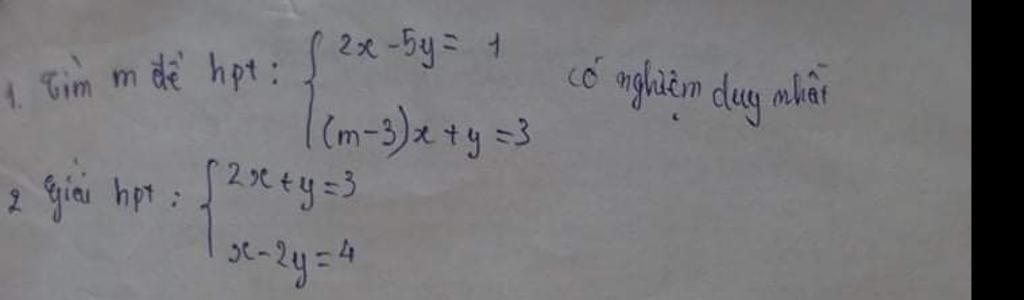 1. Tìm m để hpt: { 2x - 5y = 1
(m-3)x + y = 3 có nghiệm duy nhất
2 Giải hpt: { 2x + y = 3
x - 2y = 4